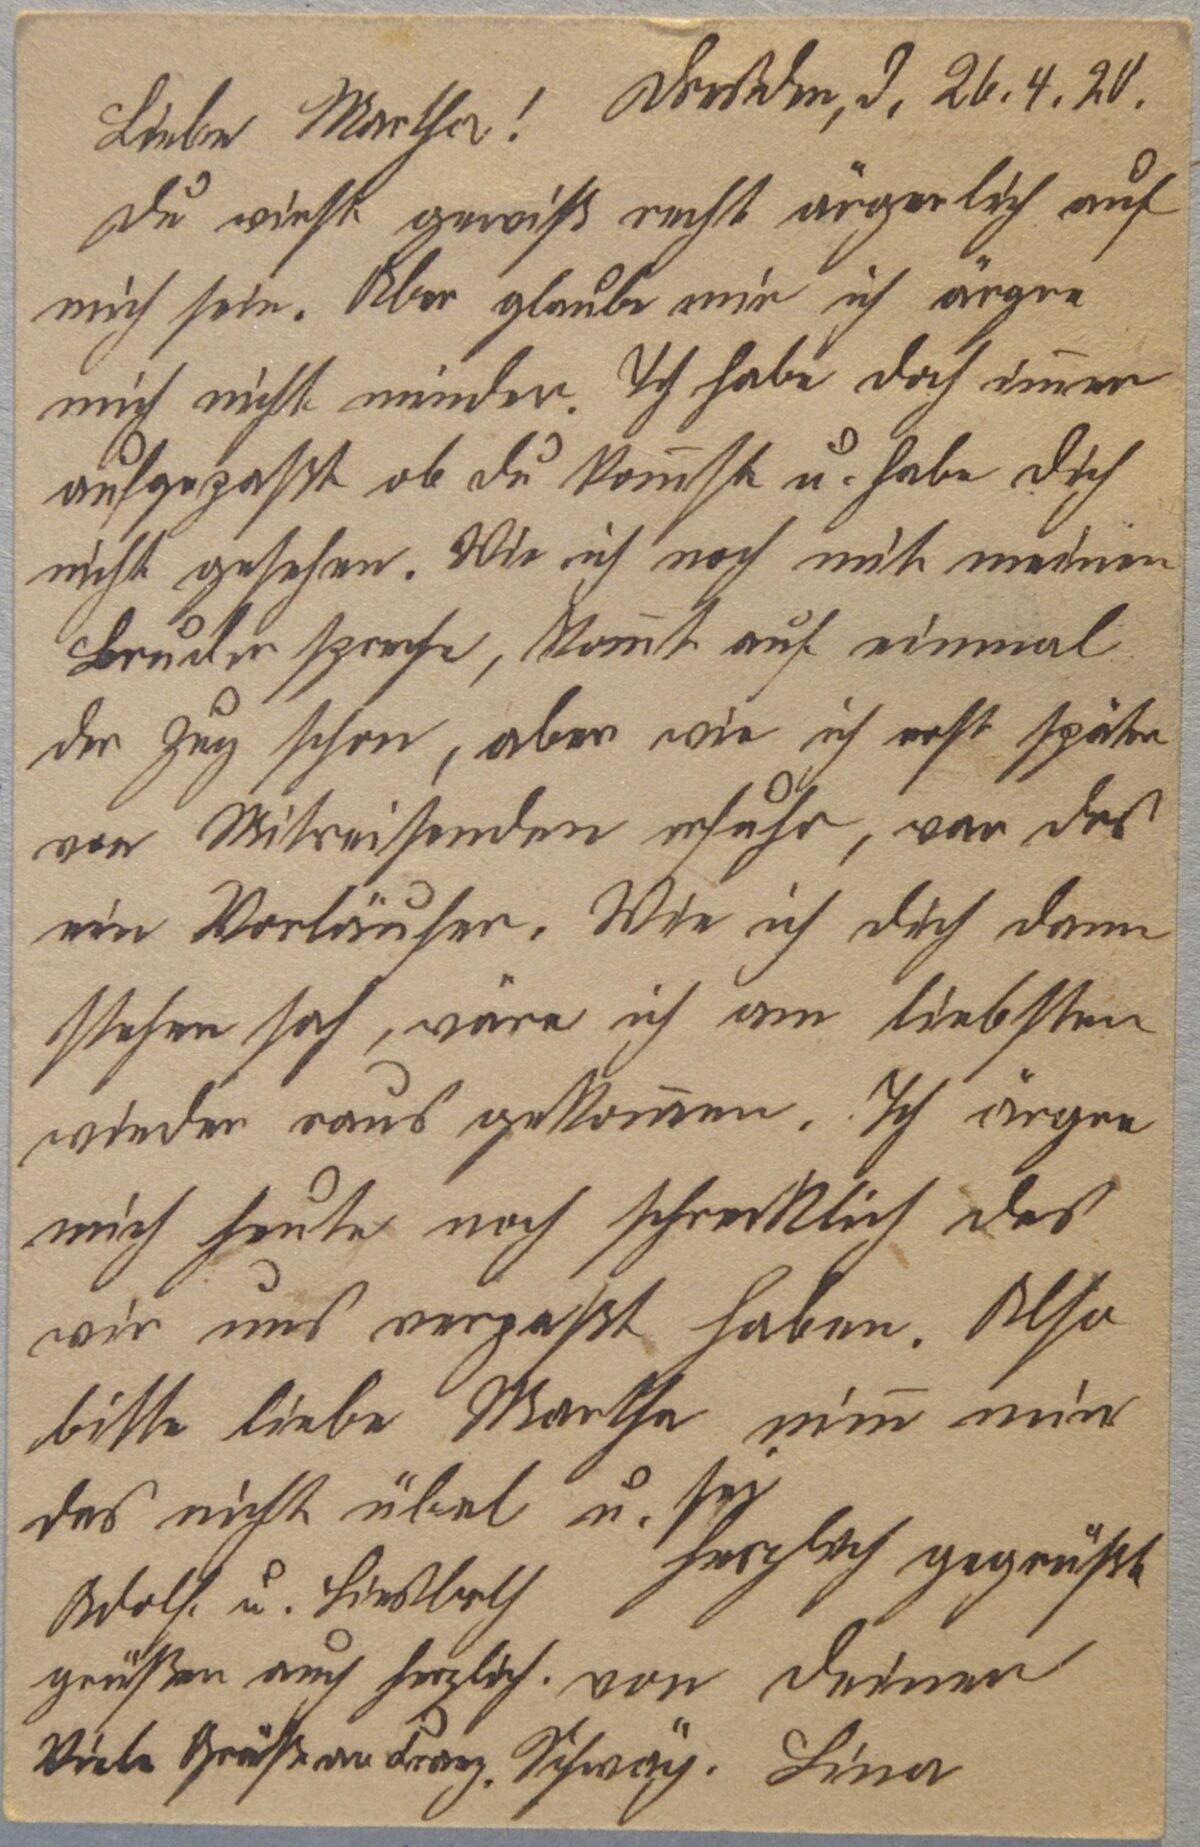 Dresden, d. 26.4.20.
Liebe Martha!
Du wirst gewiß recht ärgerlich auf
mich sein. Aber glaube mir ich ärgre
mich nicht minder. Ich habe doch im̄er
aufgepaßt ob du kom̄st u. habe dich
nicht gesehen. Wie ich noch mit meinen
Bruder spreche, kom̄t auf einmal
der Zug schon, aber wie ich erst später
von Mitreisenden erfuhr, war das
ein Vorläufer. Wie ich dich dann
stehen sah, wäre ich am liebsten
wieder raus gekom̄en. Ich ärgre
mich heute noch schrecklich das
wir uns verpaßt haben. Also
bitte liebe Martha nim̄ mir
das nicht übel u. sei
herzlich gegrüßt
von deiner
Lina
Adolf u. Liesbeth
grüßen auch herzlich.
Viele Grüße an Franz. Schwäg.